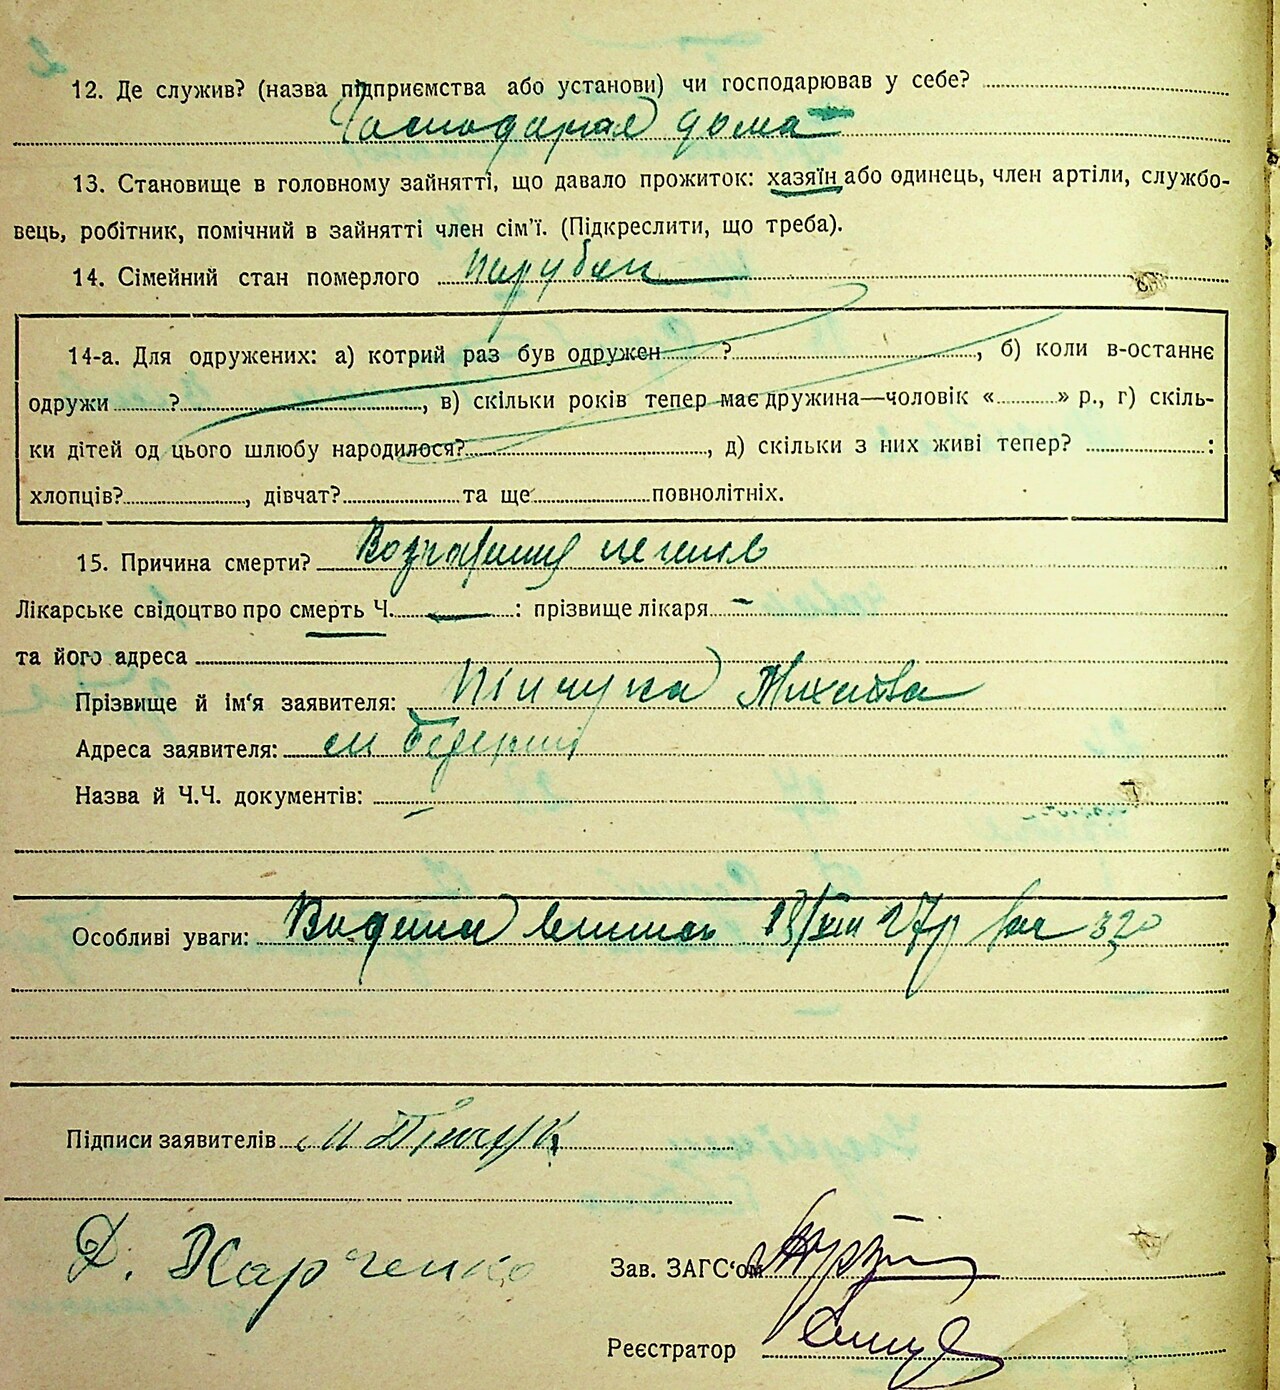 12. Де служив? (назва підприємства або установи) чи господарював у себе?
Господарював дома
13. Становище в головному зайнятті, що давало прожиток: хазяїн або одинець, член артіли, службо-
вець, робітник, помічний в зайнятті член сім'ї. (Підкреслити, що треба).
14. Сімейний стан померлого парубок
14-а. Для одружених: а) котрий раз був одружен ? , б) коли в-останнє
одружи ? , в) скільки років тепер має дружина—чоловік « » р., г) скіль-
ки дітей од цього шлюбу народилося? , д) скільки з них живі тепер? :
хлопців? , дівчат? та ще повнолітніх.
15. Причина смерти?
Лікарське свідоцтво про смерть Ч. — : прізвище лікаря -
та його адреса
Прізвище й ім'я заявителя: Пінчука Михайла
Адреса заявителя:
Назва й Ч.Ч. документів:
Особливі уваги: 27р 320
Підписи заявителів М Пінчук
Д. Харченко
Зав. ЗАГС'ом
Реєстратор